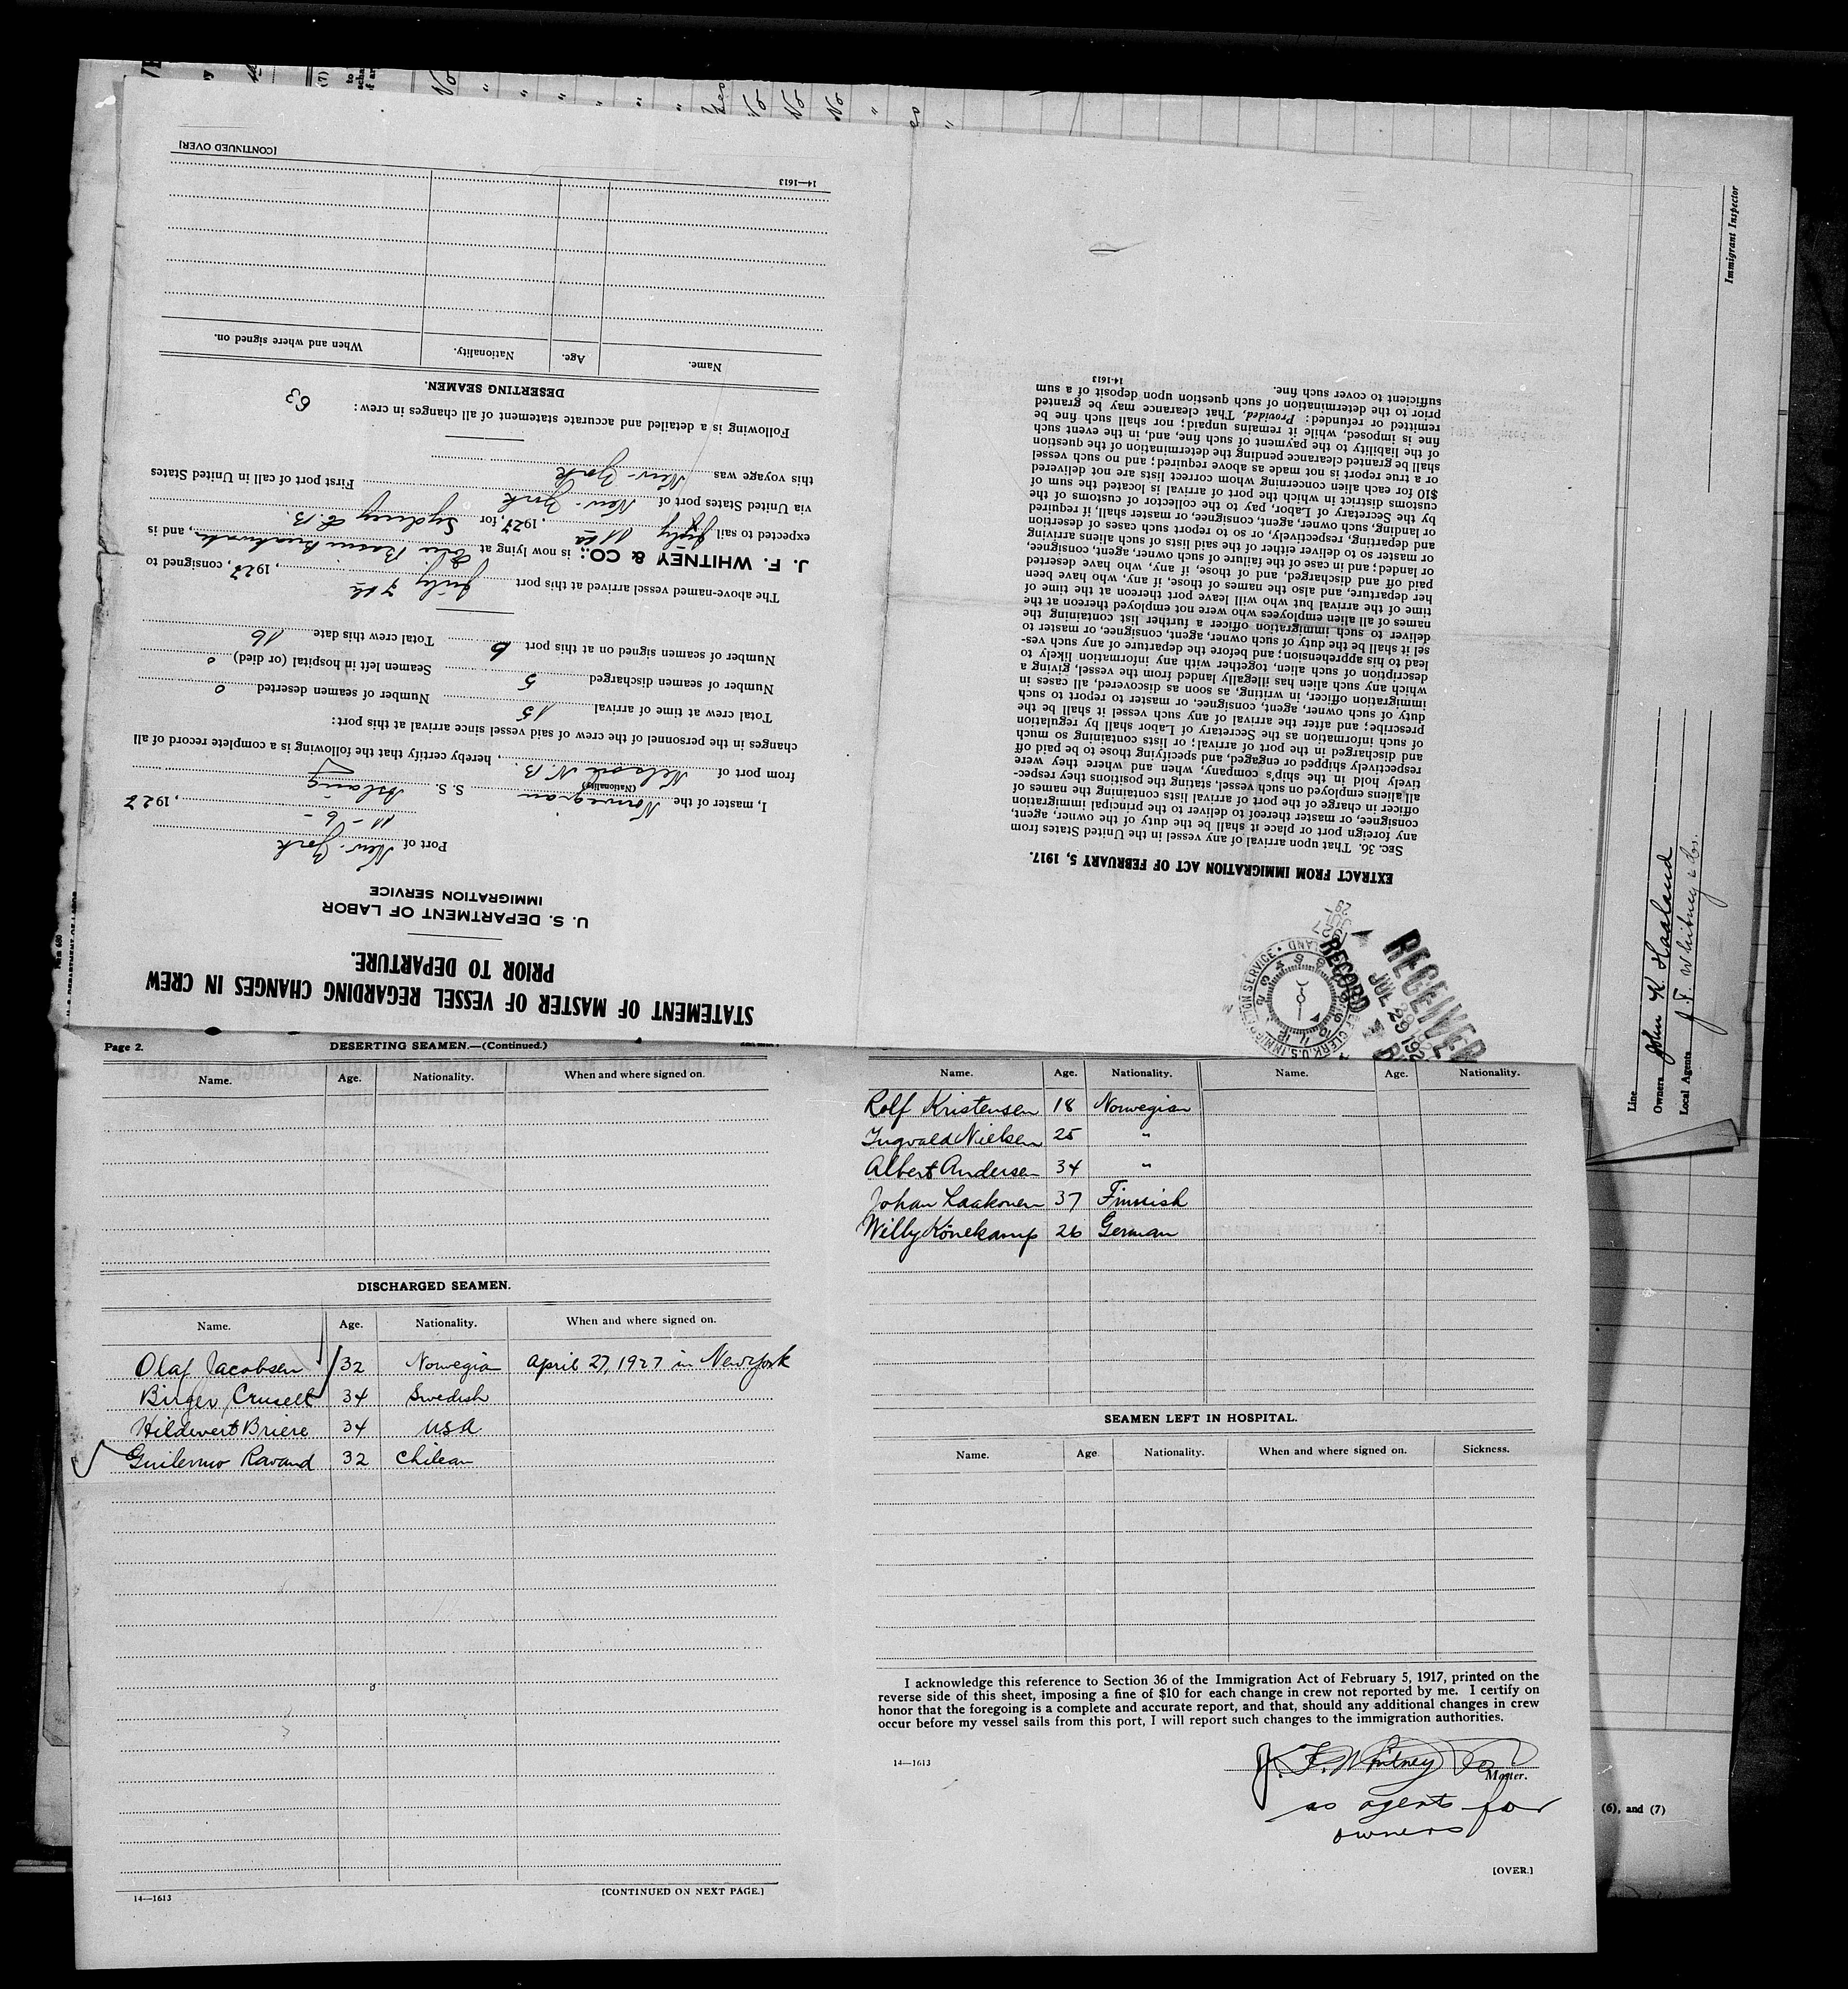 STATEMENT OF MASTER OF VESSEL REGARDING CHANGES IN CREW
PRIOR TO DEPARTURE.
U. S. DEPARTMENT OF LABOR
IMMIGRATION SERVICE
Port of New-York
11 - 6 -, 1927
I, master of the Norwegian S. S. Aslaug
(Nationality)
from port of Nelson N.B., hereby certify that the following is a complete record of all
changes in the personnel of the crew of said vessel since arrival at this port:
Total crew at time of arrival 15 Number of seamen deserted 0
Number of seamen discharged 5 Seamen left in hospital (or died) 0
Number of seamen signed on at this port 6 Total crew this date 16
The above-named vessel arrived at this port July 7th, 1927, consigned to
J. F. WHITNEY & CO.; is now lying at Erie Basin Breakwater, and is
expected to sail July 11th, 1927, for Sydney C.B.
via United States port of New-York First port of call in United States
this voyage was New-York
Following is a detailed and accurate statement of all changes in crew: 63
DESERTING SEAMEN.
Name. Age. Nationality. When and where signed on.
14—1613 [CONTINUED OVER]
RECEIVED
JUL 29 192
RECORD
EXTRACT FROM IMMIGRATION ACT OF FEBRUARY 5, 1917.
SEC. 36. That upon arrival of any vessel in the United States from
any foreign port or place it shall be the duty of the owner, agent,
consignee, or master thereof to deliver to the principal immigration
officer in charge of the port of arrival lists containing the names of
all aliens employed on such vessel, stating the positions they respec-
tively hold in the ship's company, when and where they were
respectively shipped or engaged, and specifying those to be paid off
and discharged in the port of arrival; or lists containing so much
of such information as the Secretary of Labor shall by regulation
prescribe; and after the arrival of any such vessel it shall be the
duty of such owner, agent, consignee, or master to report to such
immigration officer, in writing, as soon as discovered, all cases in
which any such alien has illegally landed from the vessel, giving a
description of such alien, together with any information likely to
lead to his apprehension; and before the departure of any such ves-
sel it shall be the duty of such owner, agent, consignee, or master to
deliver to such immigration officer a further list containing the
names of all alien employees who were not employed thereon at the
time of the arrival but who will leave port thereon at the time of
her departure, and also the names of those, if any, who have been
paid off and discharged, and of those, if any, who have deserted
or landed; and in case of the failure of such owner, agent, consignee,
or master so to deliver either of the said lists of such aliens arriving
and departing, respectively, or so to report such cases of desertion
or landing, such owner, agent, consignee, or master shall, if required
by the Secretary of Labor, pay to the collector of customs of the
customs district in which the port of arrival is located the sum of
$10 for each alien concerning whom correct lists are not delivered
or a true report is not made as above required; and no such vessel
shall be granted clearance pending the determination of the question
of the liability to the payment of such fine, and, in the event such
fine is imposed, while it remains unpaid; nor shall such fine be
remitted or refunded: Provided, That clearance may be granted
prior to the determination of such question upon deposit of a sum
sufficient to cover such fine.
14-1613
Page 2. DESERTING SEAMEN.—(Continued.)
Name. Age. Nationality. When and where signed on.
DISCHARGED SEAMEN.
Name. Age. Nationality. When and where signed on.
Olaf Jacobsen 32 Norwegia April 27, 1927 in New York
Birger Cruselt 34 Swedish
Hildevert Briere 34 USA
Guilermo Ravand 32 Chilean
14—1613 [CONTINUED ON NEXT PAGE.]
Name. Age. Nationality. Name. Age. Nationality.
Rolf Kristensen 18 Norwegian
Ingvald Nielsen 25 "
Albert Andersen 34 "
Johan Laakonen 37 Finnish
Willy Könekamp 26 German
SEAMEN LEFT IN HOSPITAL.
Name. Age. Nationality. When and where signed on. Sickness.
I acknowledge this reference to Section 36 of the Immigration Act of February 5, 1917, printed on the
reverse side of this sheet, imposing a fine of $10 for each change in crew not reported by me. I certify on
honor that the foregoing is a complete and accurate report, and that, should any additional changes in crew
occur before my vessel sails from this port, I will report such changes to the immigration authorities.
J. F. Whitney Co
14—1613 Master.
as agents for
owners
[OVER.]
Immigrant Inspector
Line
Owners John K. Haaland
Local Agents J. F. Whitney & Co.
(6), and (7)